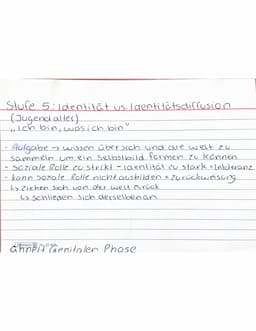 Stufe 5: Identität vs. Identitätsdiffusion
(Jugendalter)
„Ich bin, was ich bin"
- Aufgabe → wissen über sich und die welt zu
sammeln um ein Selbstbild formen zu können
- soziale Rolle zu strikt - identität zu stark = Intoleranz
- kann soziale Rolle nicht ausbilden = Zurückweisung
↳ ziehen sich von der welt zurück
↳ schließen sich derselben an
Ähnelt Genitaler Phase